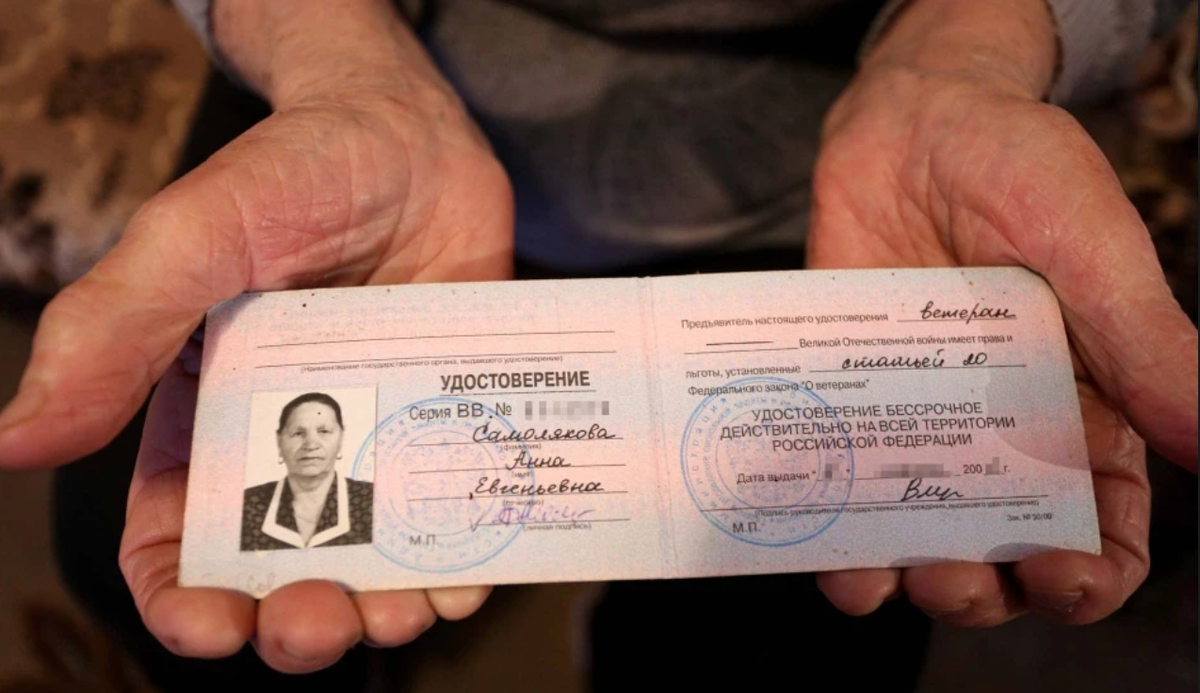 (Наименование государственного органа, выдавшего удостоверение)
УДОСТОВЕРЕНИЕ
Серия ВВ №
Самолякова
(фамилия)
Анна
(имя)
Евгеньевна
(отчество)
(личная подпись)
М.П.
Предъявитель настоящего удостоверения ветеран
Великой Отечественной войны имеет права и
льготы, установленные статьей 20
Федерального закона "О ветеранах"
УДОСТОВЕРЕНИЕ БЕССРОЧНОЕ
ДЕЙСТВИТЕЛЬНО НА ВСЕЙ ТЕРРИТОРИИ
РОССИЙСКОЙ ФЕДЕРАЦИИ
Дата выдачи " 200 г.
(подпись руководителя государственного учреждения, выдавшего удостоверение)
М.П.
Зак. № 50/00